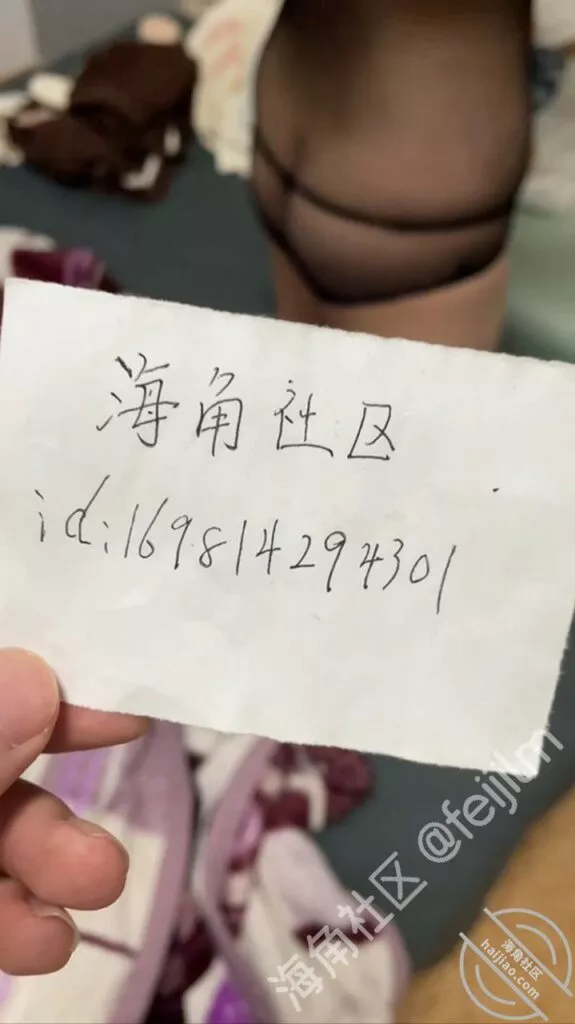 海角社区
id:169814294301
海角社区 @feijilm
海角社区
haijiao.com